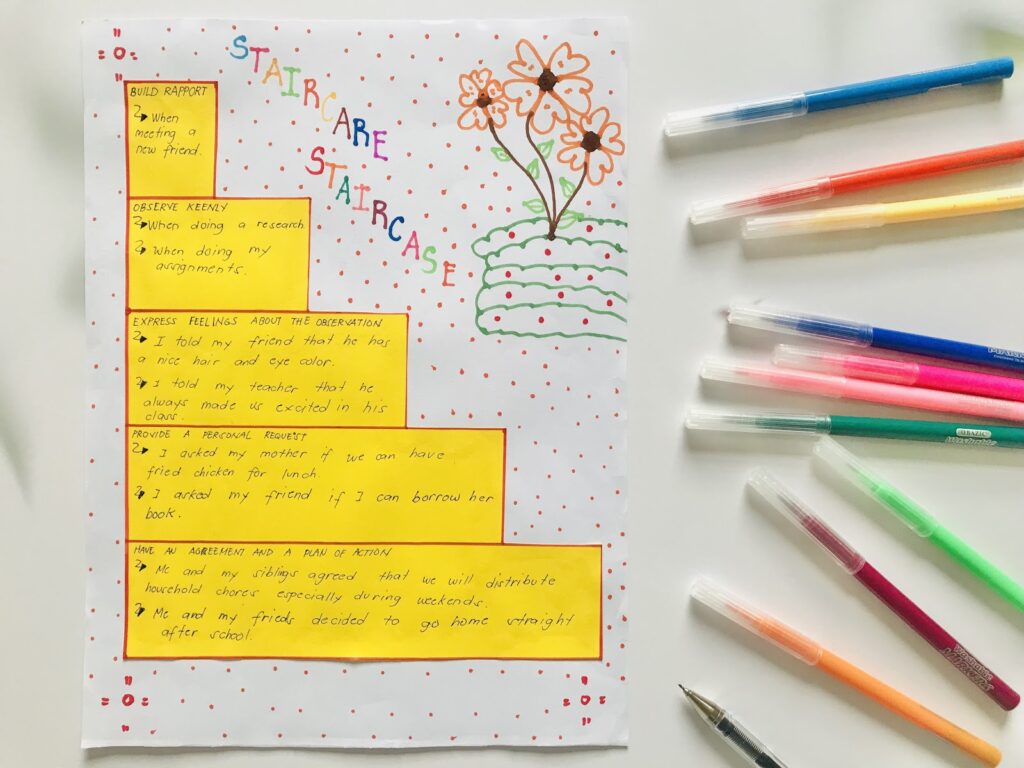 STAIRCARE
STAIRCASE
BUILD RAPPORT
When
meeting a
new friend.
OBSERVE KEENLY
When doing a research
When doing my
assignments.
EXPRESS FEELINGS ABOUT THE OBSERVATION
I told my friend that he has
a nice hair and eye color.
I told my teacher that he
always made us excited in his
class.
PROVIDE A PERSONAL REQUEST
I asked my mother if we can have
fried chicken for lunch.
I asked my friend if I can borrow her
book.
HAVE AN AGREEMENT AND A PLAN OF ACTION
Me and my siblings agreed that we will distribute
household chores especially during weekends.
Me and my frieds decided to go home straight
after school.
BAZIC
Washable